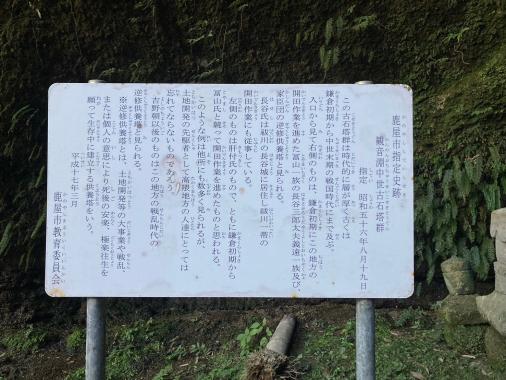 鹿屋市指定史跡
観音淵中世古石塔群
指定 昭和五十六年八月十九日
この古石塔群は時代的に層が厚く古くは
鎌倉初期から中世末期の戦国時代にまで及ぶ。
入口から見て右側のものは、鎌倉初期にこの地方の、
開田作業を進めた富山一族の長谷三郎太夫義遠一族及び、
家臣団の逆修供養塔と見られる。
長谷氏は祓川の長谷城に居住し祓川一帯の
開田作業にも従事している。
左側のものは肝付氏のもので、ともに鎌倉初期から
富山氏と競って開田作業を進めたものと思われる。
このような例は他所にも数多く見られるが、
土地開発の先駆者として高隈地方の人達にとっては
忘れてならないものであろう。
吉野朝以後のものはこの地方の戦乱時代の
逆修供養塔と見られる。
※逆修供養塔とは、土地開発等の大事業や戦乱、
または個人の意思により死後の安楽、極楽往生を
願って生存中に建立する供養塔をいう。
平成十七年三月
鹿屋市教育委員会